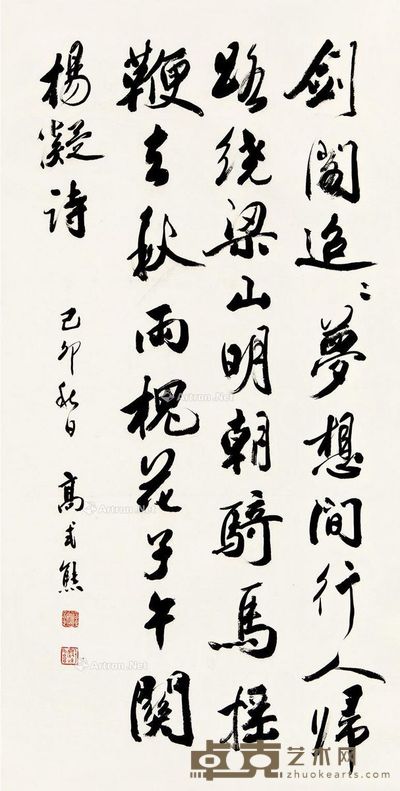 劍閣迢〻夢想間行人歸
路繞梁山明朝騎馬摇
鞭去秋雨槐花子午關
楊凝詩
己卯秋日 高式熊
Artron.Net
Artron.Net
Artron.Net
卓克艺术网
zhuokearts.com